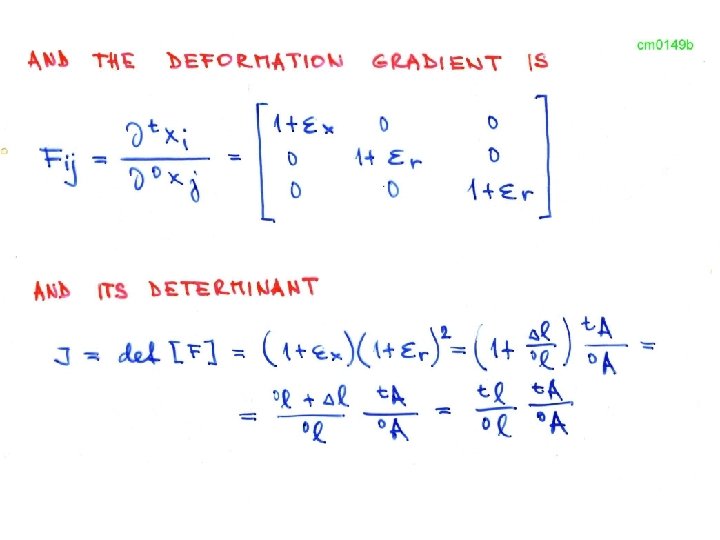 cm0149b
AND THE DEFORMATION GRADIENT IS
Fij = ∂ᵗxi / ∂⁰xj = [ 1+εx 0 0
0 1+εr 0
0 0 1+εr ]
AND ITS DETERMINANT
J = det [F] = (1+εx)(1+εr)² = (1 + Δl / ⁰l) ᵗA / ⁰A =
= (⁰l + Δl) / ⁰l ᵗA / ⁰A = ᵗl / ⁰l ᵗA / ⁰A